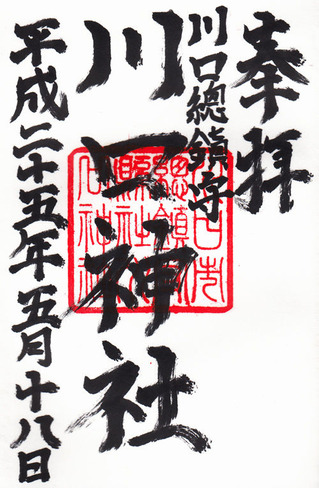 奉拝
川口總鎮守
川口神社
平成二十五年五月十八日